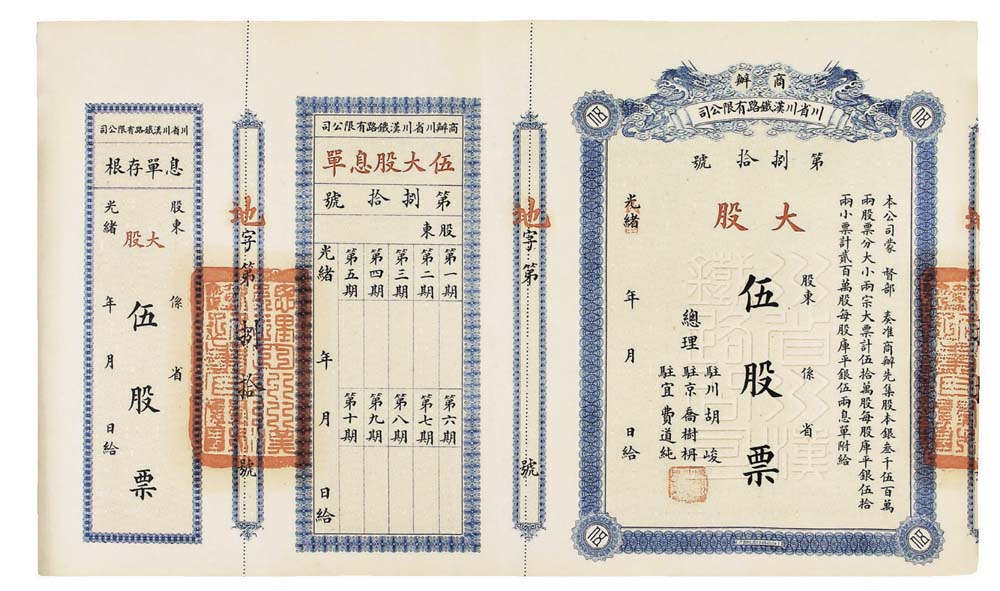 商辦
川省川漢鐵路有限公司
第捌拾號
本公司蒙 督部 奏准商辦先集股本銀叁千伍百萬
兩股票分大小兩宗大票計伍拾萬股每股庫平銀伍拾
兩小票計貳百萬股每股庫平銀伍兩息單附給
大股
股東 係 省
伍股票
總理
駐川胡峻
駐京喬樹枬
駐宜費道純
光緒 年 月 日給
川省川漢
鐵路公司
地字第 號
商辦川省川漢鐵路有限公司
伍大股息單
第捌拾號
股東
第一期 第六期
第二期 第七期
第三期 第八期
第四期 第九期
第五期 第十期
光緒 年 月 日給
地字第捌拾號
川省川漢鐵路有限公司
息單存根
股東 係 省
大股
伍股票
光緒 年 月 日給